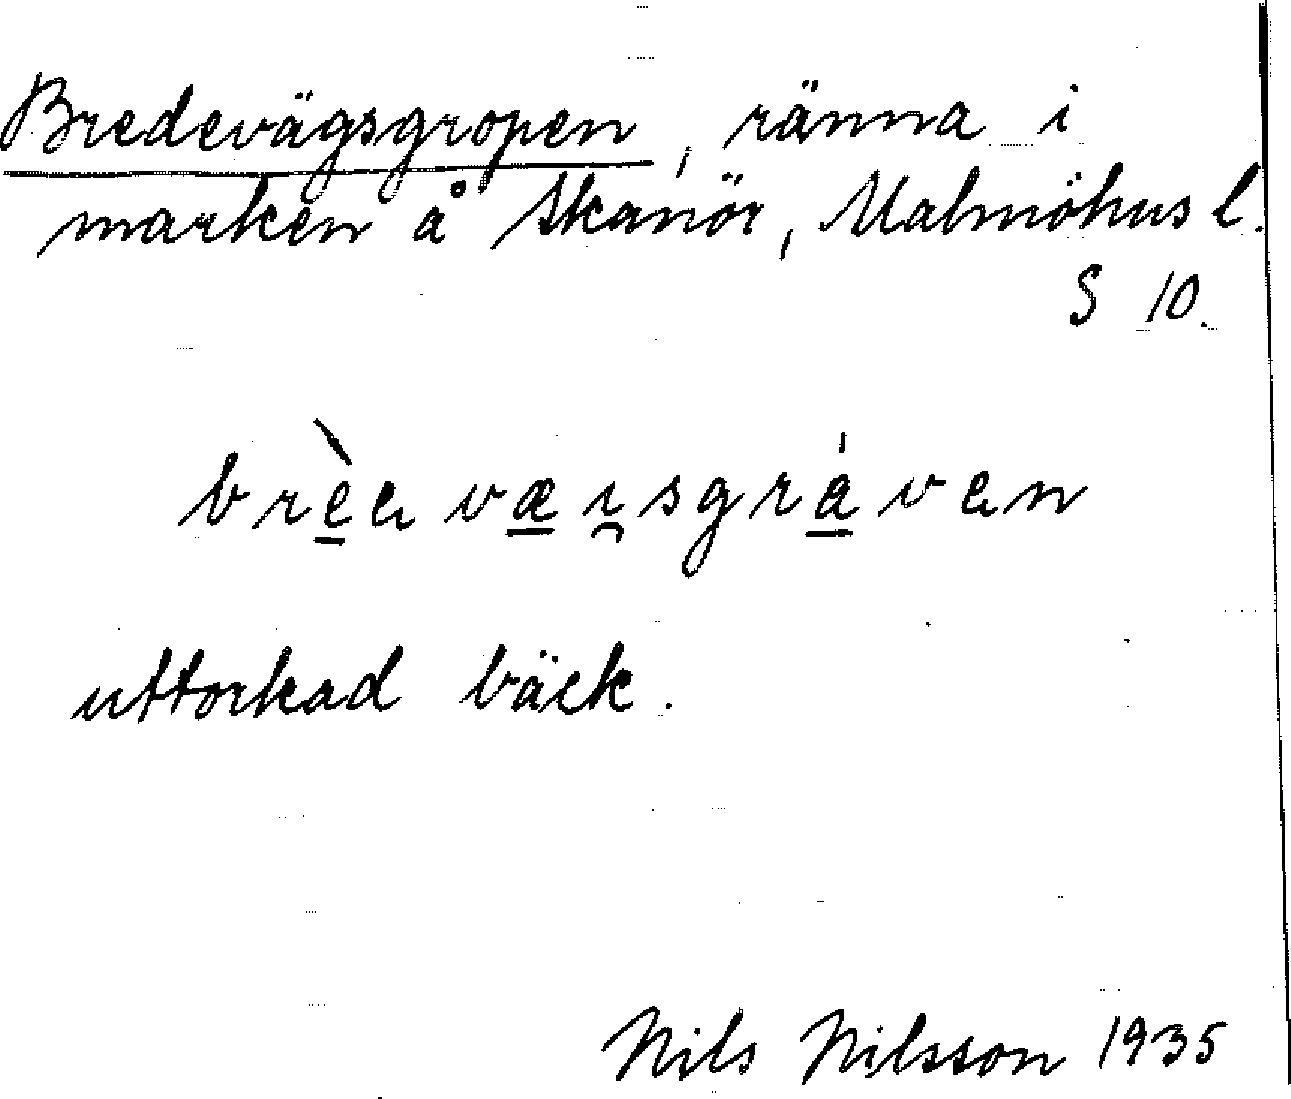 Bredevägsgropen, ränna i
marken å Skanör, Malmöhus l.
S 10.
brèe væi̯sgráven
uttorkad bäck.
Nils Nilsson 1935